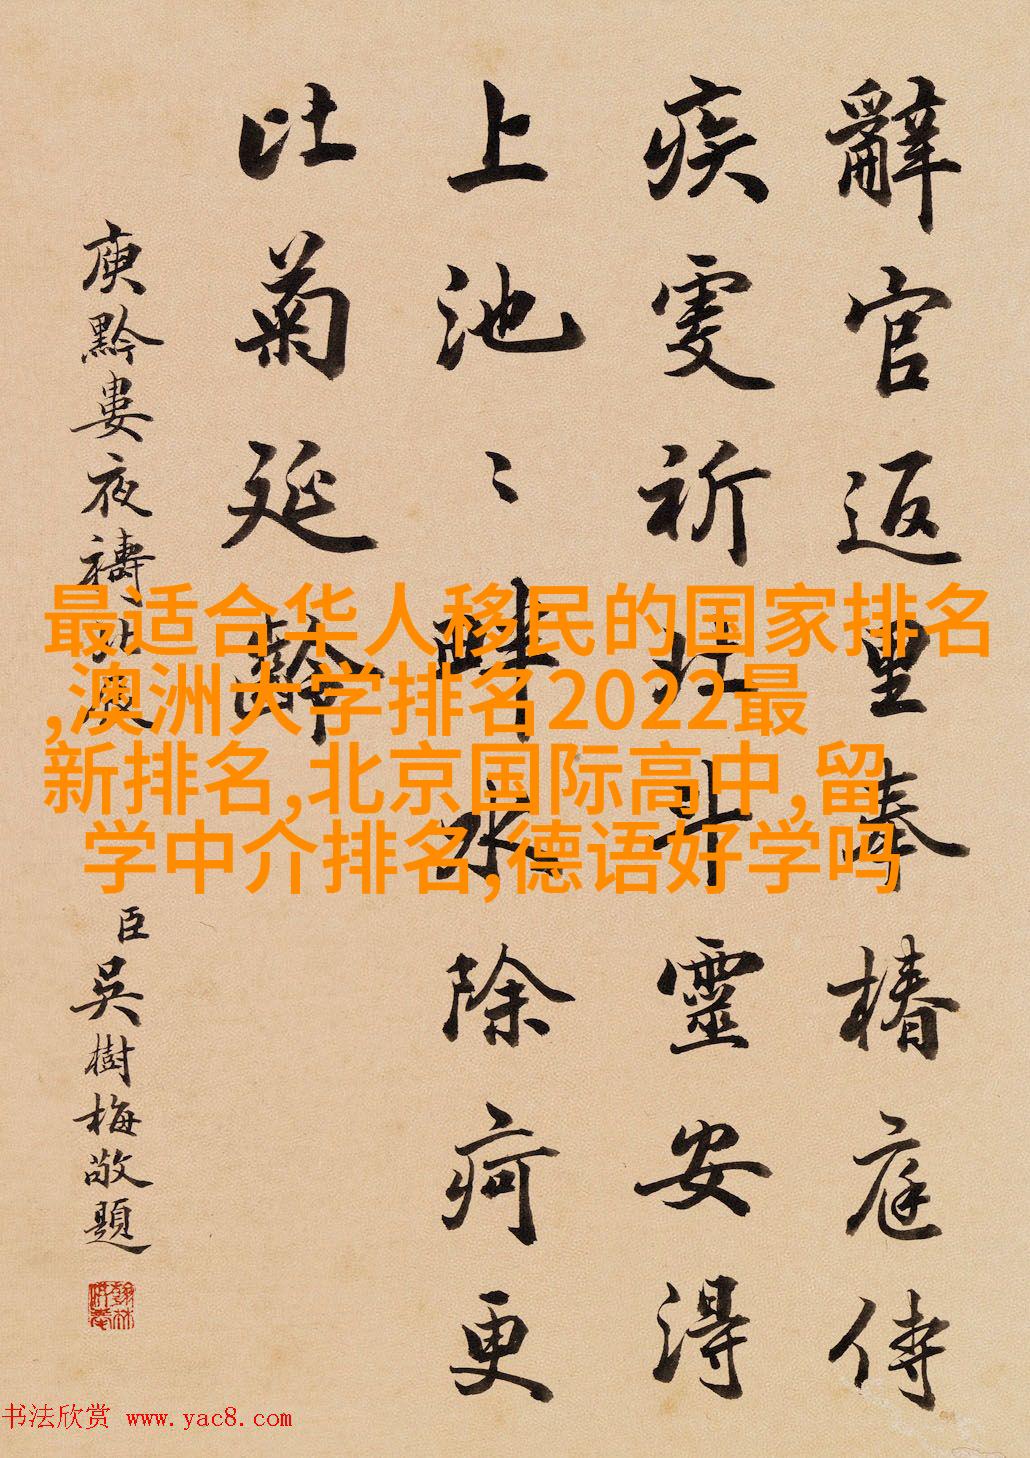 辭官返里奉椿庭侍
疾虔祈北斗靈安得
上池〻畔水除疴更
比菊延齡
庾黔婁夜禱北
臣吳樹梅敬題
最适合华人移民的国家排名
,澳洲大学排名2022最
新排名,北京国际高中,留
学中介排名,德语好学吗
书法欣赏 www.yac8.com